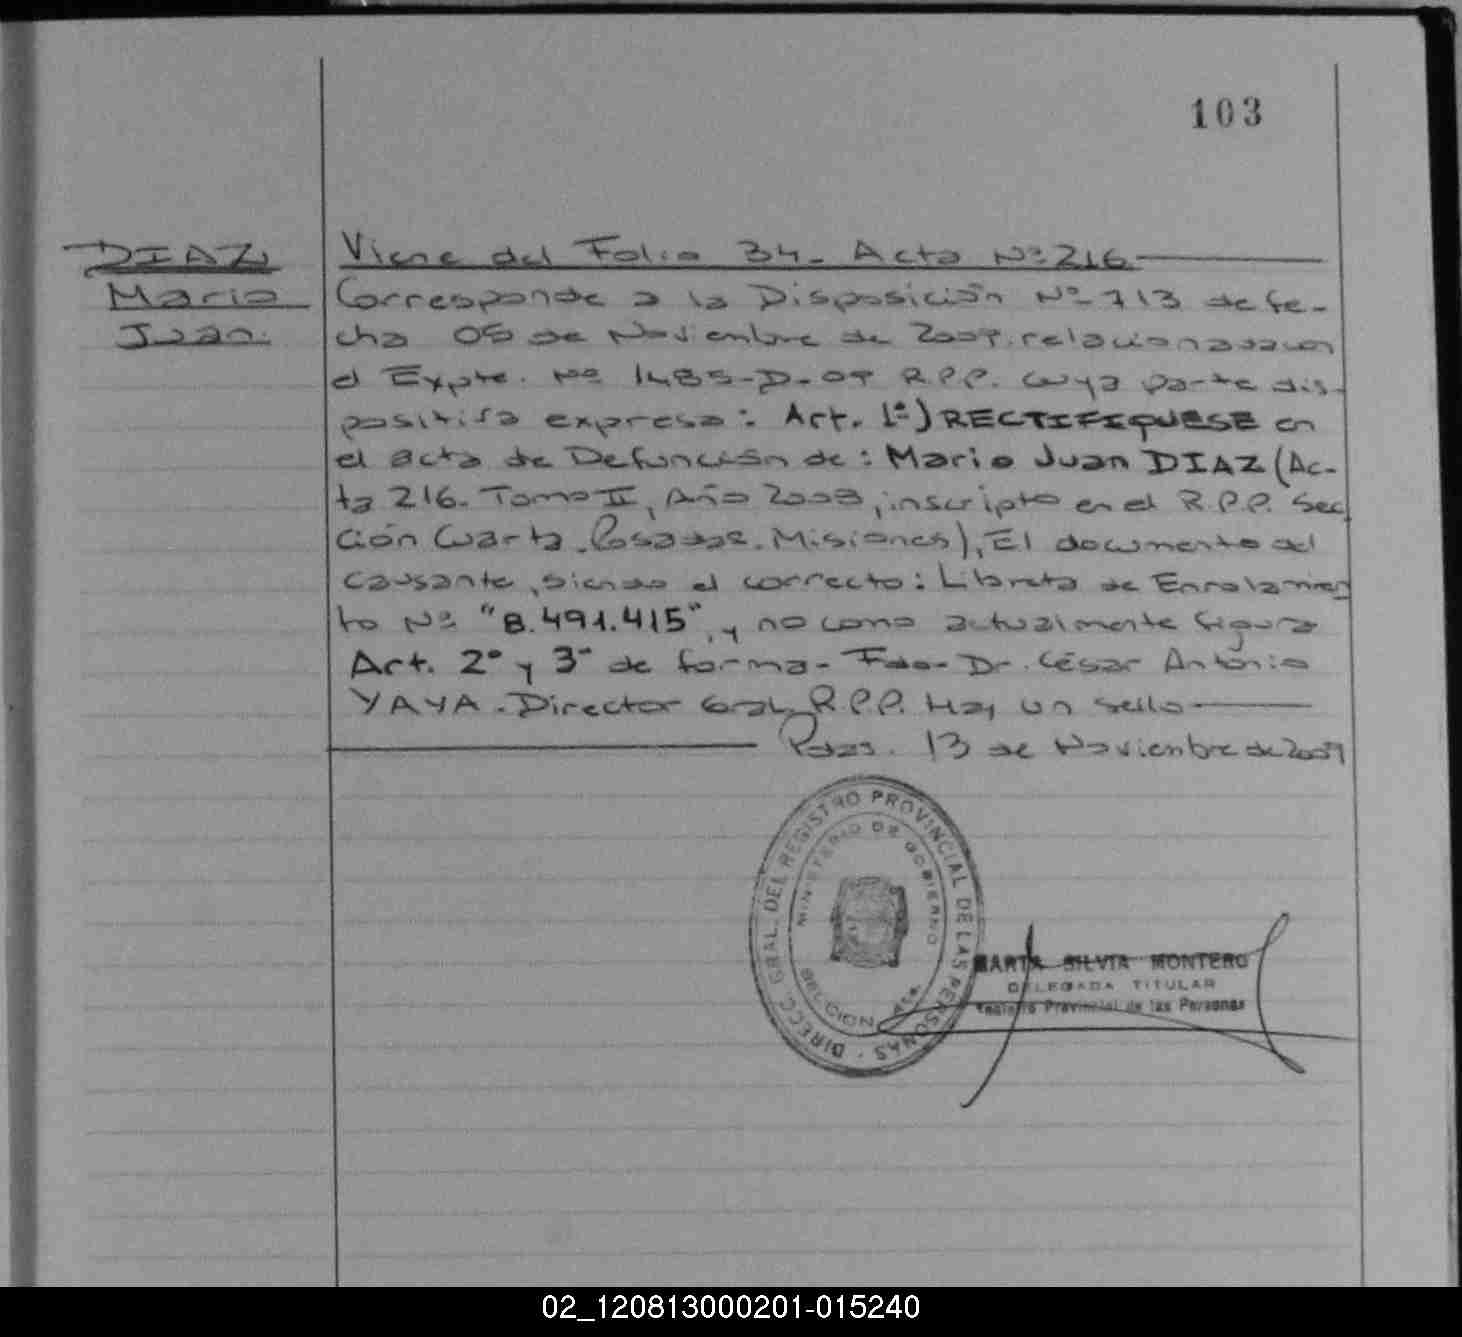 103
DIAZ,
Mario
Juan.
Viene del Folio 34- Acta Nº 216
Corresponde a la Disposición Nº 713 de fe-
cha 05 de Noviembre de 2009, relacionada con
el Expte. Nº 1485-D-09 R.P.P. cuya parte dis-
positiva expresa: Art. 1º) RECTIFIQUESE en
el acta de Defunción de: Mario Juan DIAZ (Ac-
ta 216. Tomo II, Año 2008, inscripto en el R.P.P. Sec
ción Cuarta. Posadas. Misiones), El documento del
causante, siendo el correcto: Libreta de Enrolamien
to Nº "8.491.415", y no como actualmente figura
Art. 2º y 3º de forma- Fdo- Dr. César Antonio
YAYA. Director Gral. R.P.P. Hay un sello
Pdas. 13 de Noviembre de 2009
DIRECC. GRAL. DEL REGISTRO PROVINCIAL DE LAS PERSONAS
MINISTERIO DE GOBIERNO
MARTA SILVIA MONTERO
DELEGADA TITULAR
Registro Provincial de las Personas
02_120813000201-015240